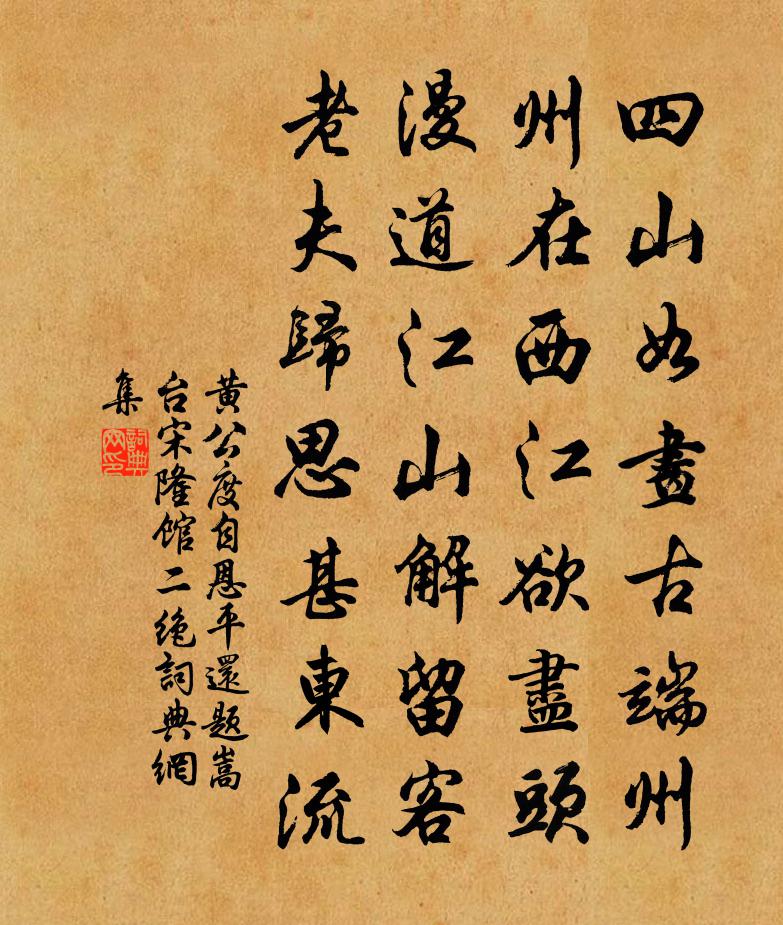 四山如畫古端州
州在西江欲盡頭
漫道江山解留客
老夫歸思甚東流
黃公度自恩平還题嵩
台宋隆館二绝詞典網
集
詞典網印